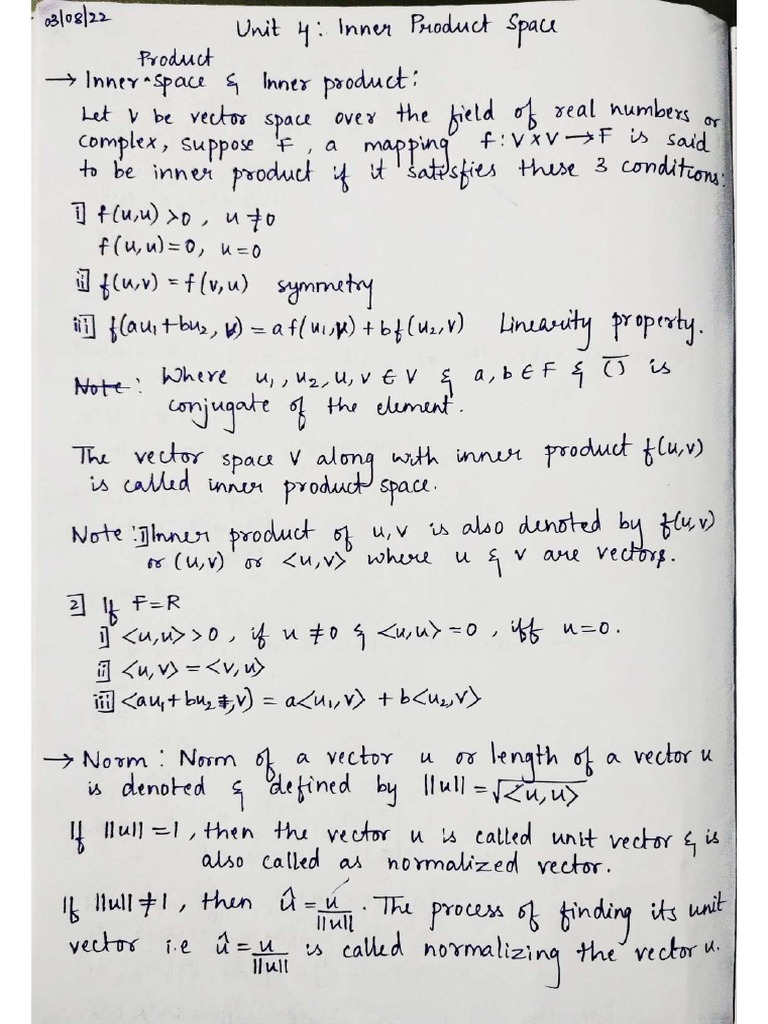 03/08/22
Unit 4: Inner Product Space
Product
→ Inner^space & Inner product:
Let V be vector space over the field of real numbers or
complex, suppose F, a mapping f: V×V → F is said
to be inner product if it satisfies these 3 conditions:
i] f(u,u) >0, u ≠0
f(u,u)=0, u=0
ii] f(u,v) = f(v,u) symmetry
iii] f(au₁+bu₂, v) = af(u₁,v)+bf(u₂,v) Linearity property.
Note: Where u₁, u₂, u, v ∈ V & a, b ∈ F & \overline{()} is
conjugate of the element.
The vector space V along with inner product f(u,v)
is called inner product space.
Note: 1] Inner product of u,v is also denoted by f(u,v)
or (u,v) or <u,v> where u & v are vectors.
2] If F=R
i] <u,u> >0, if u ≠0 & <u,u> =0, iff u=0.
ii] <u,v> = <v,u>
iii] <au₁+bu₂,v> = a<u₁,v> + b<u₂,v>
→ Norm: Norm of a vector u or length of a vector u
is denoted & defined by ||u|| = √<u,u>
If ||u|| =1, then the vector u is called unit vector & is
also called as normalized vector.
If ||u|| ≠1, then û = u/||u||. The process of finding its unit
vector i.e û = u/||u|| is called normalizing the vector u.